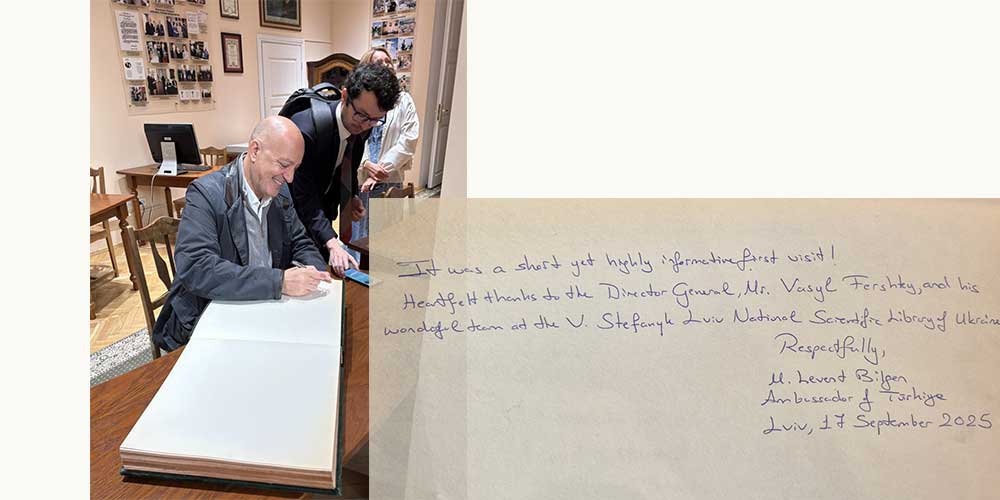 It was a short yet highly informative first visit!
Heartfelt thanks to the Director General, Mr. Vasyl Fershtey, and his
wonderful team at the V. Stefanyk Lviv National Scientific Library of Ukraine
Respectfully,
M. Levent Bilgen
Ambassador of Türkiye
Lviv, 17 September 2025